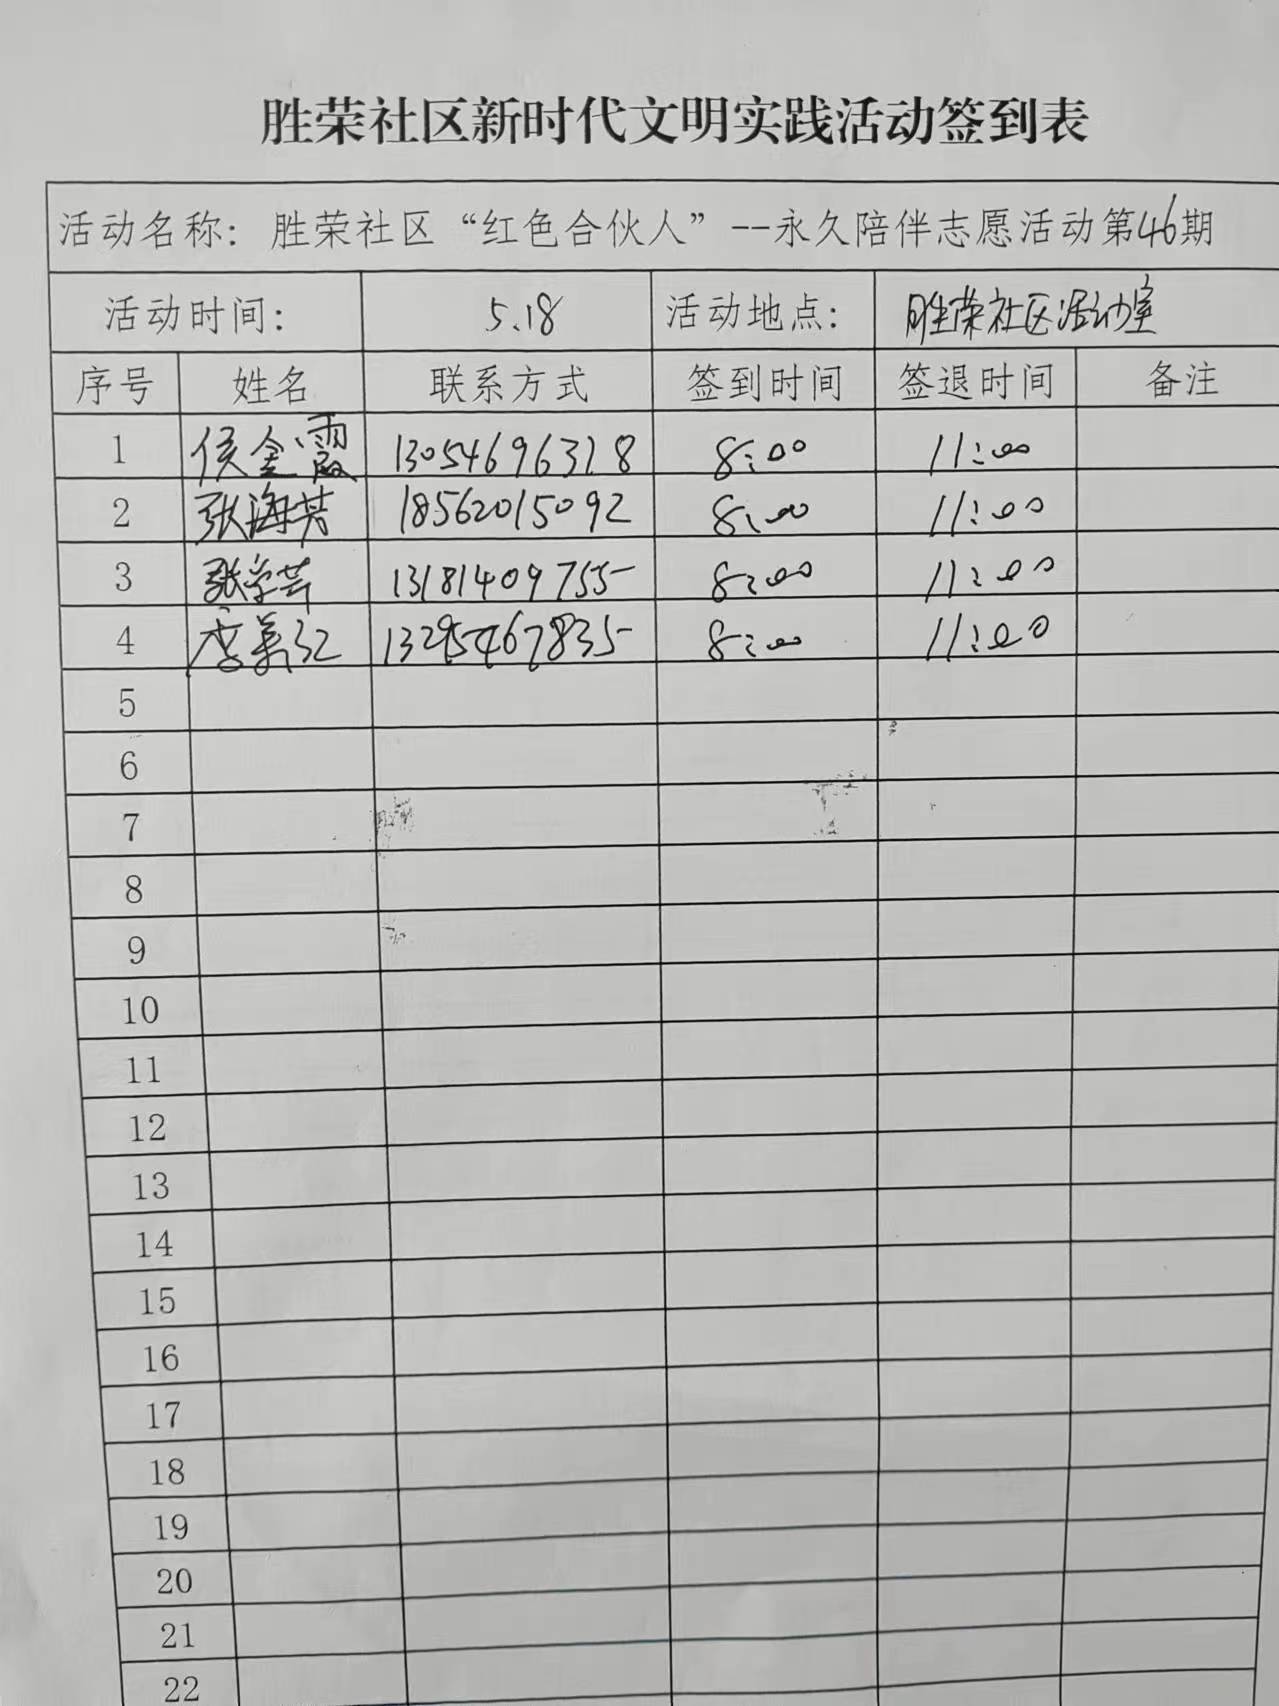 胜荣社区新时代文明实践活动签到表
活动名称：胜荣社区“红色合伙人”--永久陪伴志愿活动第46期
活动时间： 5.18 活动地点： 胜荣社区活动室
序号 姓名 联系方式 签到时间 签退时间 备注
1 侯金霞 13054696318 8:00 11:00
2 张海芳 18562015092 8:00 11:00
3 张学芸 13181409755 8:00 11:00
4 李美红 13295467835 8:00 11:00
5
6
7
8
9
10
11
12
13
14
15
16
17
18
19
20
21
22